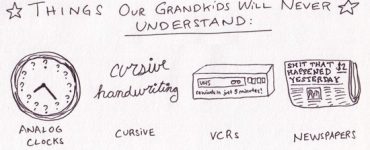 THINGS OUR GRANDKIDS WILL NEVER
UNDERSTAND:
? ? ? ? ? ? ? ? ? ? ? ?
cursive
handwriting
VHS
rewinds in just 5 minutes!
SHIT THAT
HAPPENED
YESTERDAY
$2
ANALOG
CLOCKS
CURSIVE
VCRs
NEWSPAPERS